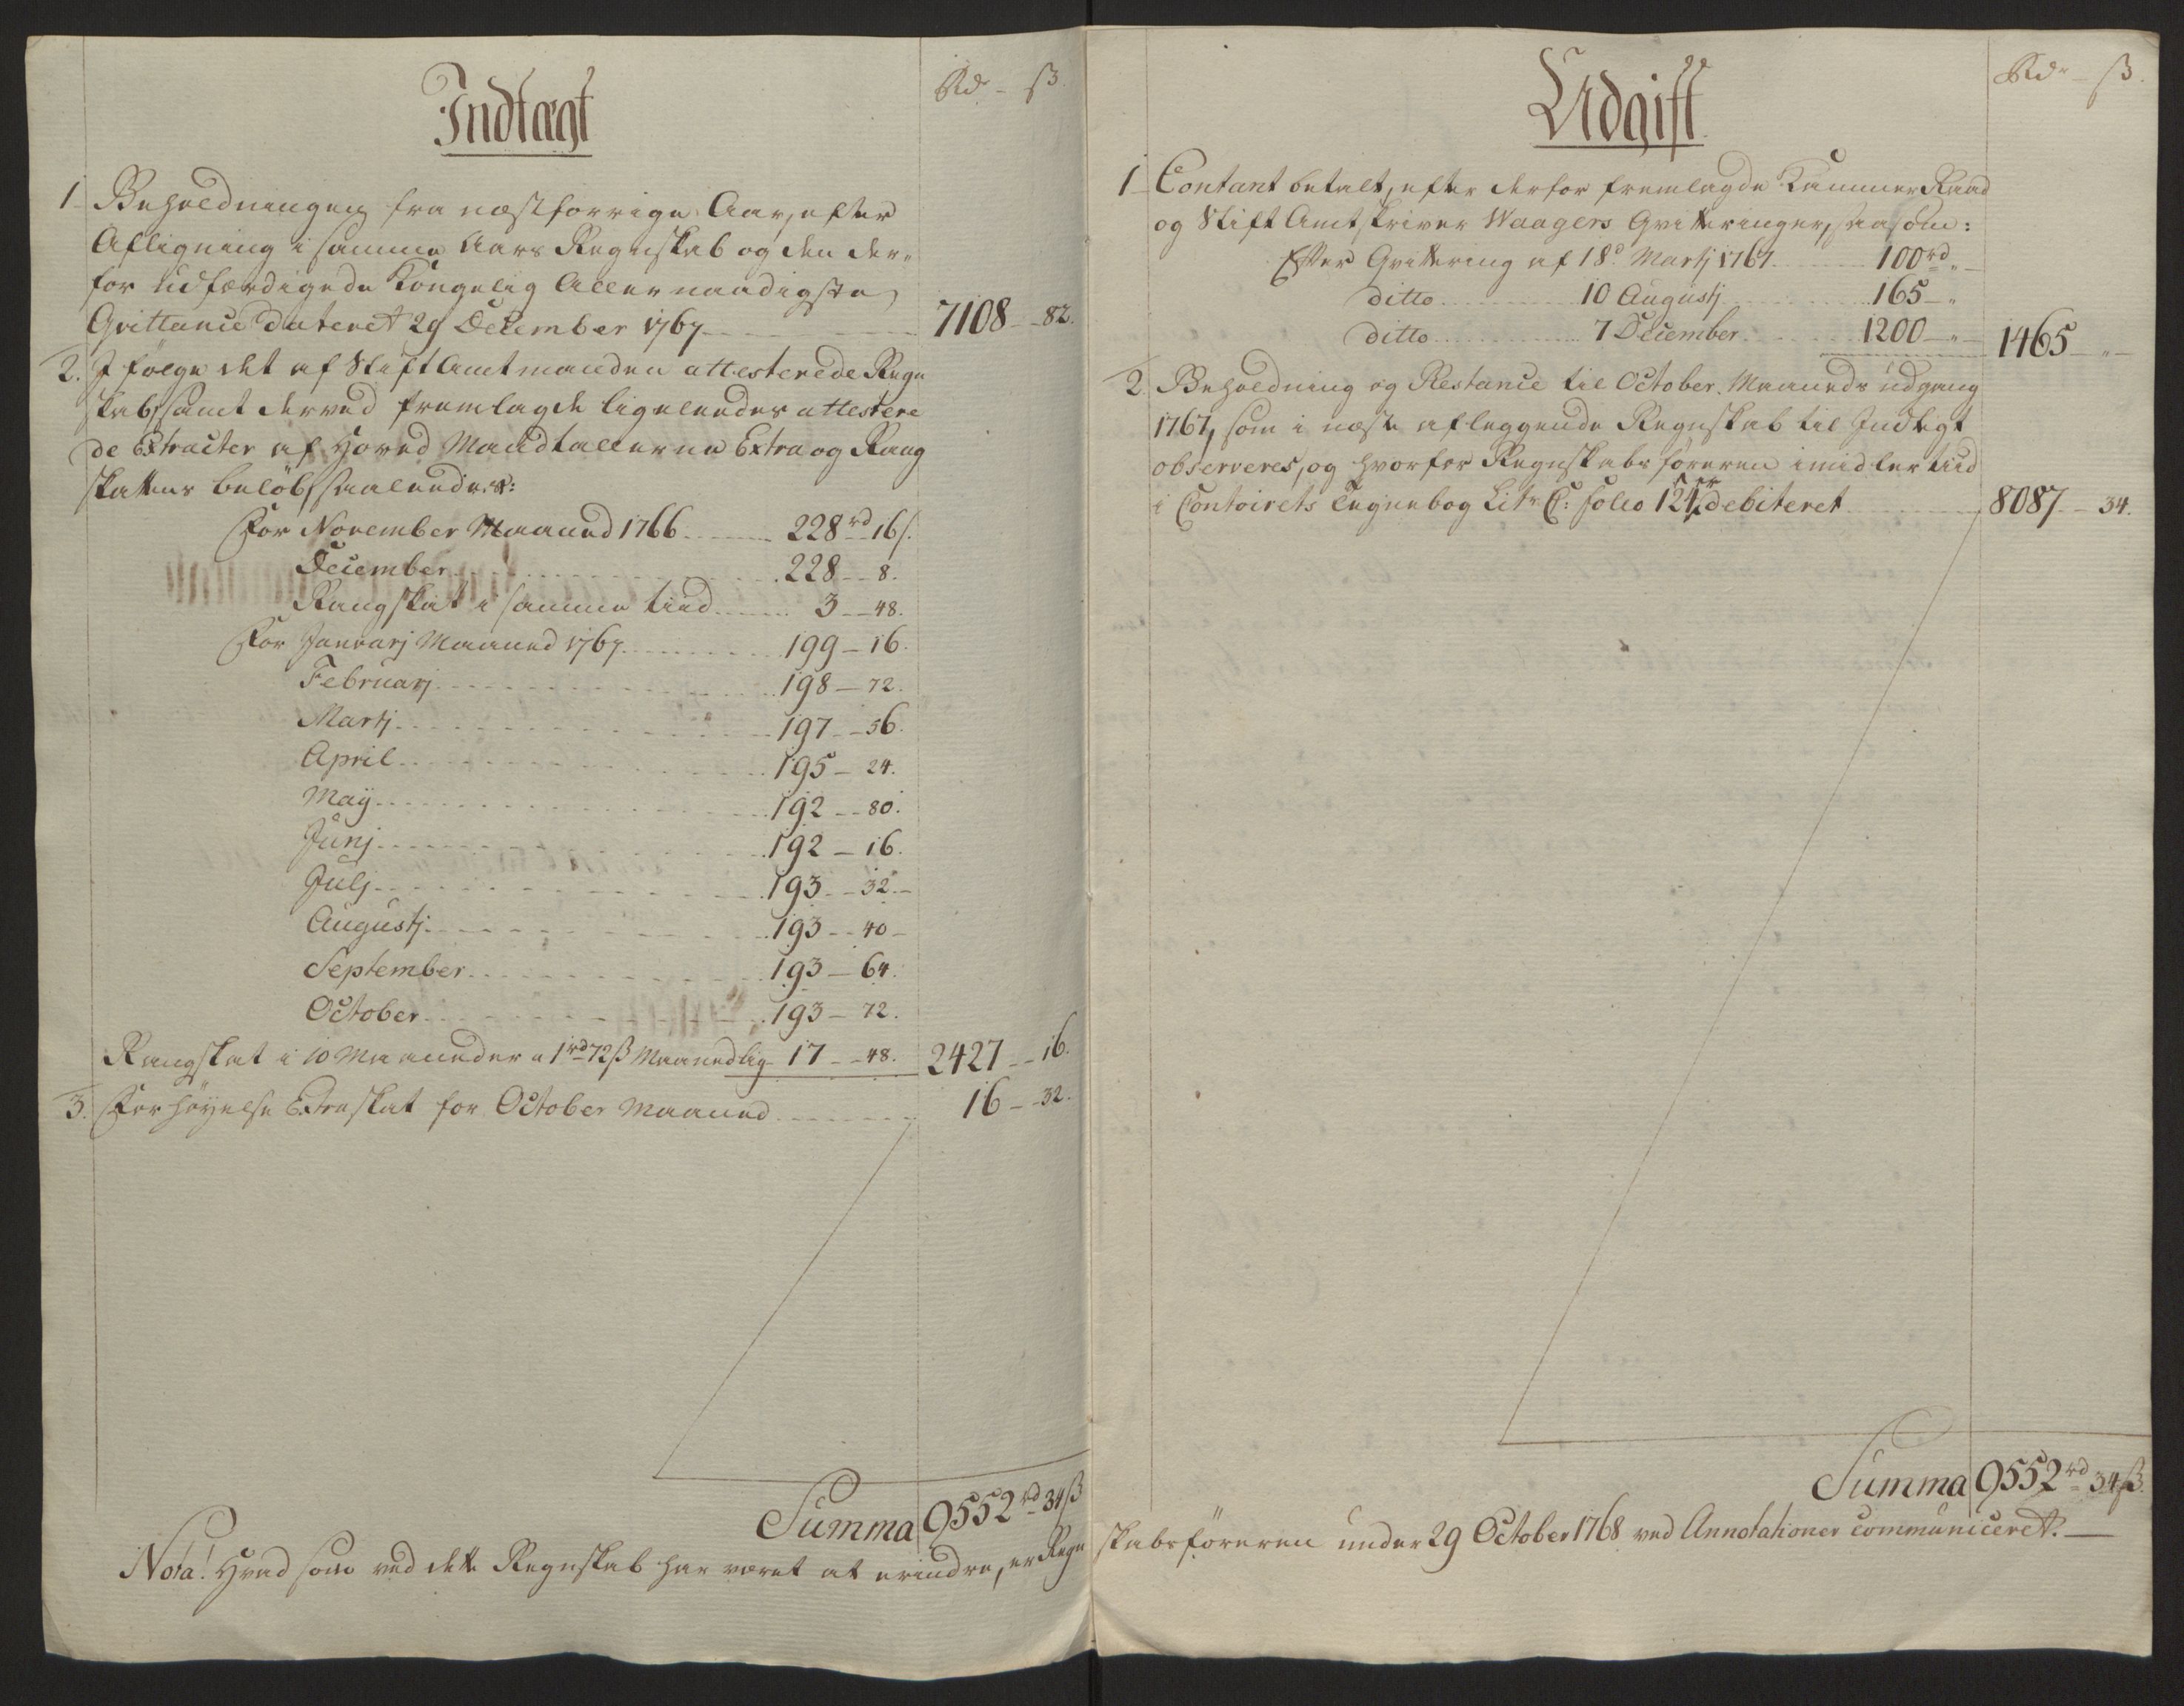 Indtægt
Rd - ß.
1. Beholdningen fra næstforrige Aar, efter
Afligning i samme Aars Regnskab og den der-
for udfærdigede Kongelig Allernaadigste
Qvittance dateret 29 December 1767 7108 - 82.
2. I følge det af Stiftamtmanden attesterede Regn
skab, samt derved fremlagde ligeleedes attestere
de Extracter af Hoved Mandtallerne Extra og Rang
skattens beløb, saaleedes:
For November Maaned 1766 228 rd 16 ß.
December 228 - 8.
Rangskat i samme tiid 3 - 48.
For Januarj Maaned 1767 199 - 16.
Februarj 198 - 72.
Martj 197 - 56.
April 195 - 24.
Maÿ 192 - 80.
Junj 192 - 16.
Julj 193 - 32 -
Augustj 193 - 40 -
September 193 - 64.
October 193 - 72.
Rangskat i 10 Maaneder a 1 rd 72 ß Maanedlig 17 - 48. 2427 - 16.
3. Forhøyelse Extraskat for October Maaned 16 - 32.
Summa 9552 rd 34 ß
Nota! Hvad som ved dette Regnskab har været at erindre, er Regn
Udgift
Rdr - ß.
1 Contant betalt, efter derfor fremlagde Kammer Raad
og Stift Amtskriver Waagers Qvitteringer, saasom:
Efter Qvittering af 18d Martj 1767 100 rd "
ditto 10 Augustj 165 - "
ditto 7 December 1200 - " 1465 - "
2. Beholdning og Restance til October Maaneds udgang
1767, som i næste aflæggende Regnskab til Indtægt
observeres, og hvorfor Regnskabsføreren imidlertiid
i Contoirets Tegnebog Litr C: folio 121 er debiteret 8087 - 34.
Summa 9552 rd 34 ß.
skabsføreren under 29 October 1768 ved Annotationer communiceret.